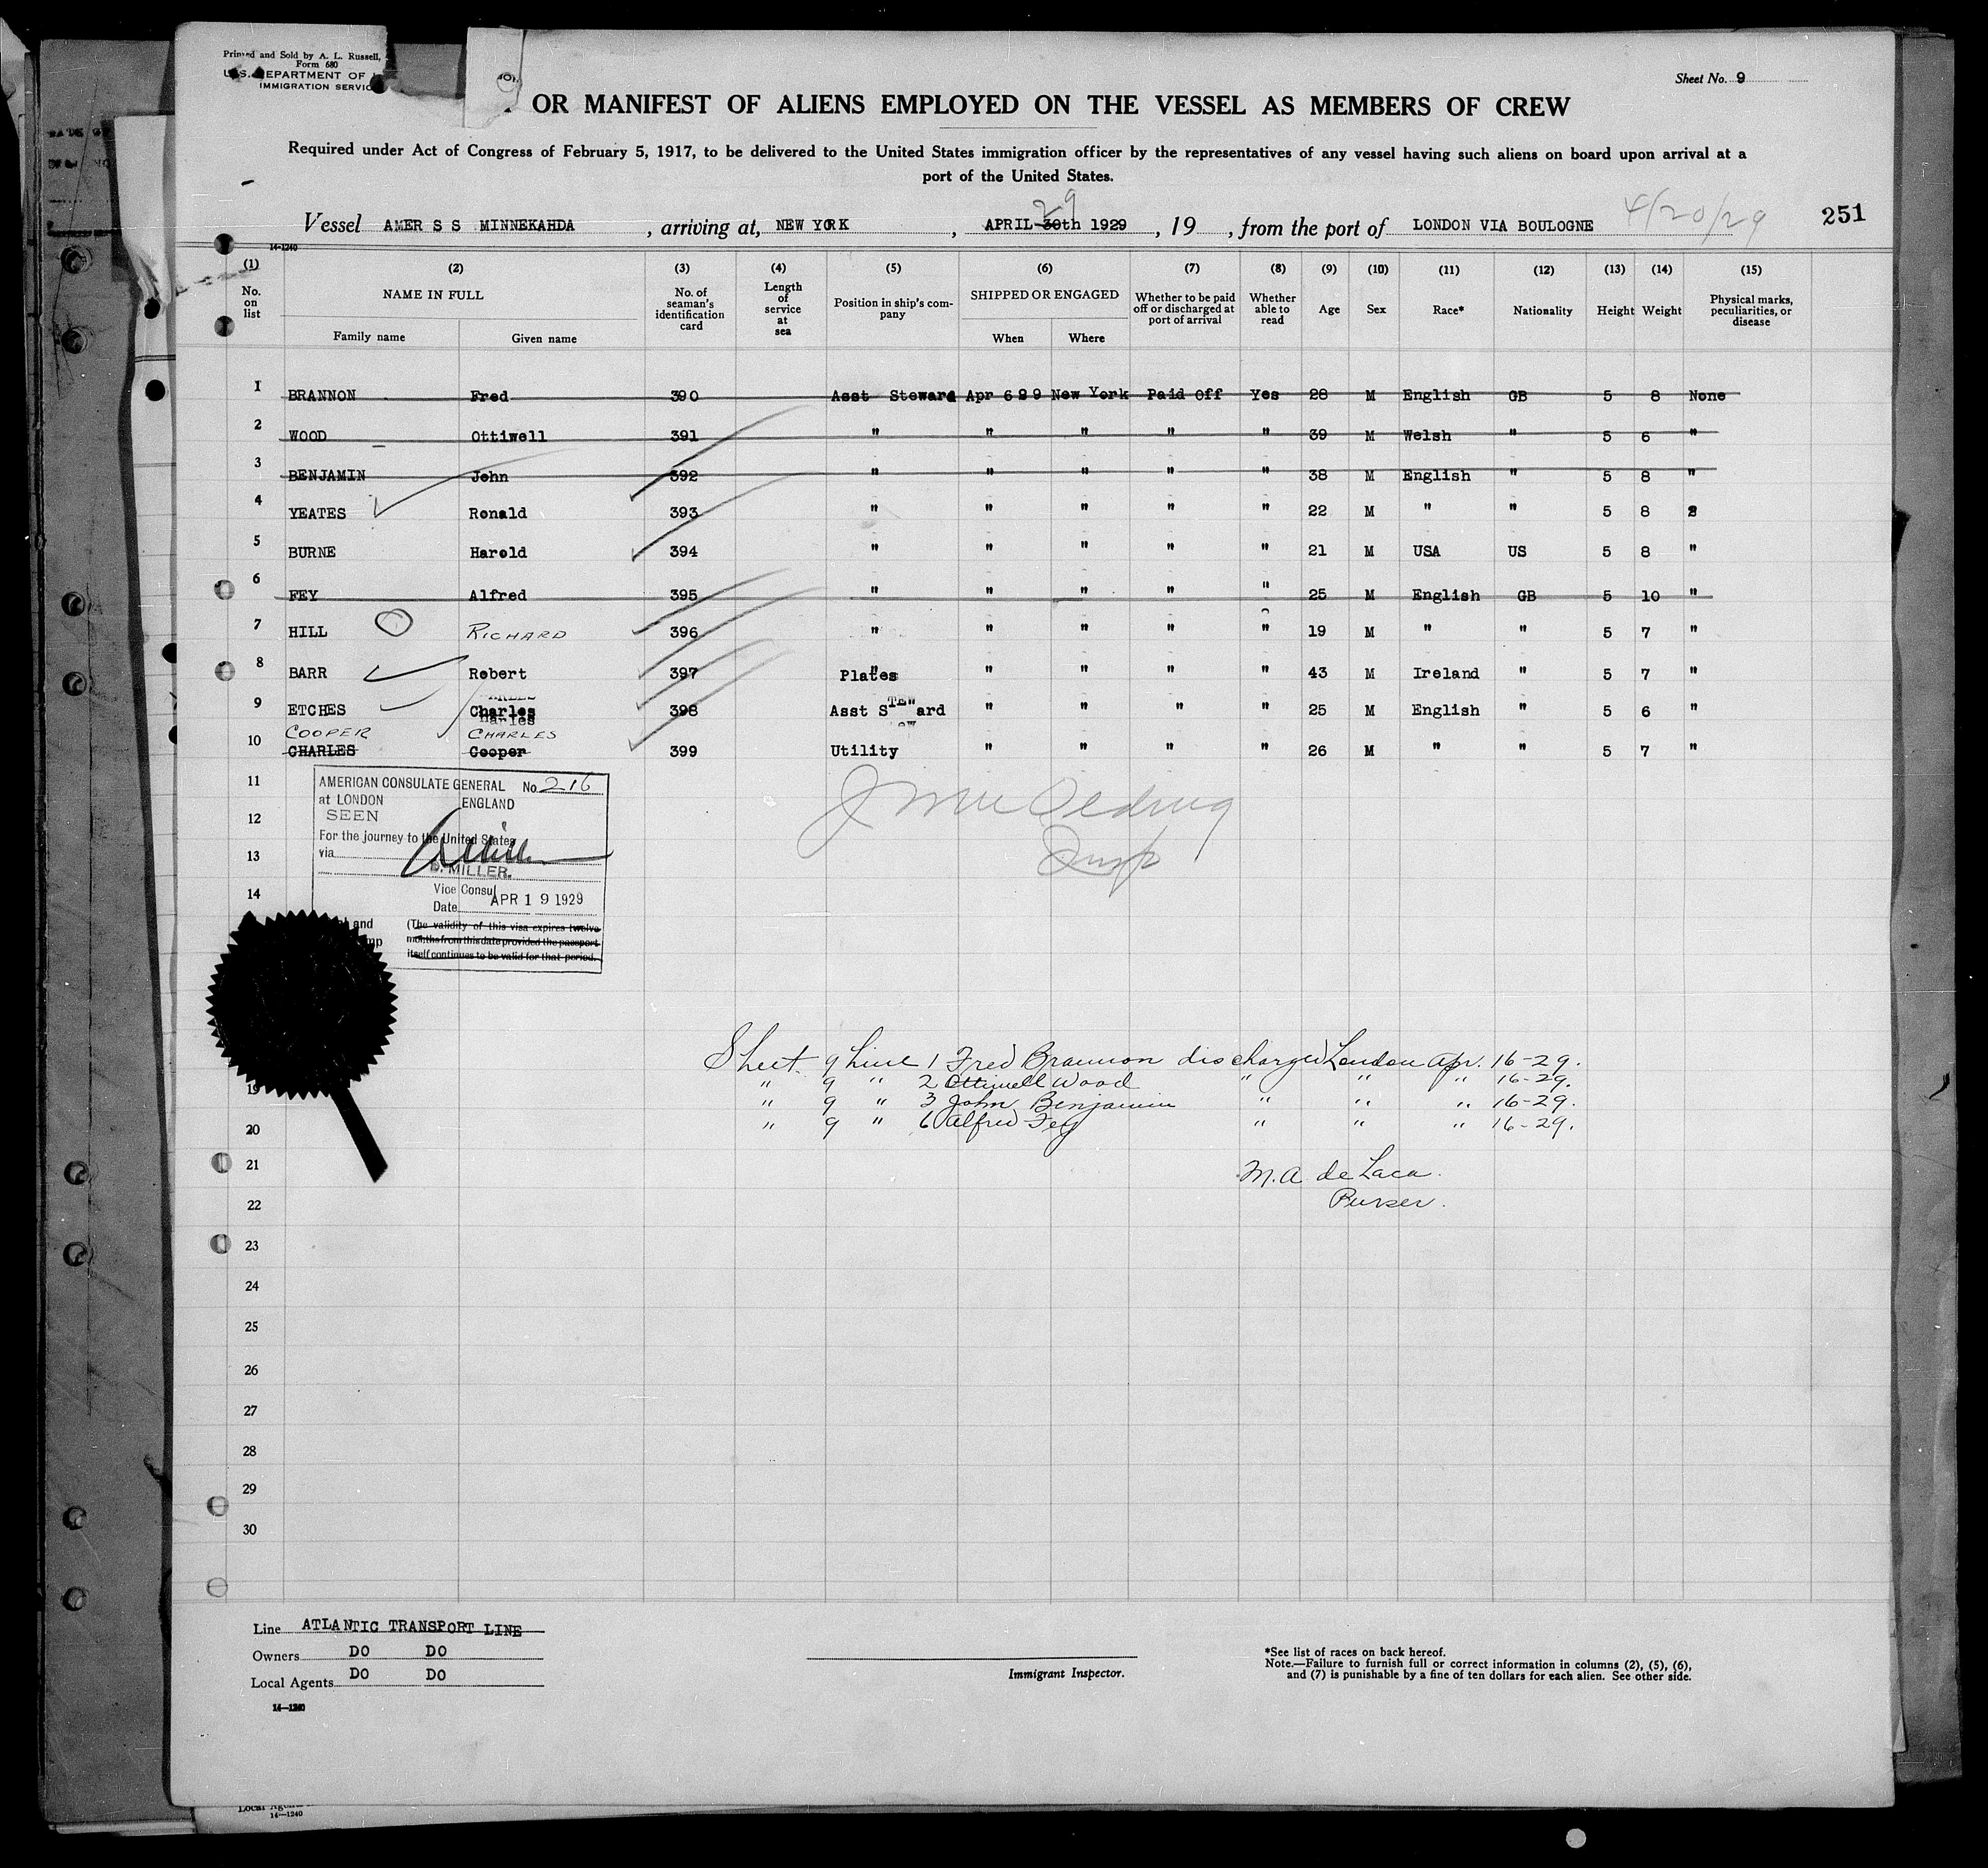 Printed and Sold by A. L. Russell,
Form 680
U.S. DEPARTMENT OF
IMMIGRATION SERVIC
Sheet No. 9
OR MANIFEST OF ALIENS EMPLOYED ON THE VESSEL AS MEMBERS OF CREW
Required under Act of Congress of February 5, 1917, to be delivered to the United States immigration officer by the representatives of any vessel having such aliens on board upon arrival at a
port of the United States.
Vessel AMER S S MINNEKAHDA , arriving at, NEW YORK , APRIL 30th 29 1929 , 19 , from the port of LONDON VIA BOULOGNE 4/20/29 251
14-1240
(1) (2) (3) (4) (5) (6) (7) (8) (9) (10) (11) (12) (13) (14) (15)
No. on list NAME IN FULL No. of seaman's identification card Length of service at sea Position in ship's company SHIPPED OR ENGAGED Whether to be paid off or discharged at port of arrival Whether able to read Age Sex Race* Nationality Height Weight Physical marks, peculiarities, or disease
Family name Given name When Where
1 BRANNON Fred 390 Asst Steward Apr 6 29 New York Paid Off Yes 28 M English GB 5 8 None
2 WOOD Ottiwell 391 " " " " " 39 M Welsh " 5 6 "
3 BENJAMIN John 392 " " " " " 38 M English " 5 8 "
4 YEATES Ronald 393 " " " " " 22 M " " 5 8 "
5 BURNE Harold 394 " " " " " 21 M USA US 5 8 "
6 FEY Alfred 395 " " " " " 25 M English GB 5 10 "
7 HILL RICHARD 396 " " " " " 19 M " " 5 7 "
8 BARR Robert 397 Plates " " " " 43 M Ireland " 5 7 "
9 ETCHES Charles 398 Asst STeward " " " " 25 M English " 5 6 "
COOPER CHARLES
10 CHARLES Cooper 399 Utility " " " " 26 M " " 5 7 "
11
12
13
14
AMERICAN CONSULATE GENERAL No. 216
at LONDON ENGLAND
SEEN
For the journey to the United States
via
MILLER.
Vice Consul
Date APR 19 1929
(The validity of this visa expires twelve
months from this date provided the passport
itself continues to be valid for that period.
Insp
Sheet 9 Line 1 Fred Brannon discharged London Apr. 16-29.
" 9 " 2 Ottiwell Wood " " " 16-29.
" 9 " 3 John Benjamin " " " 16-29.
" 9 " 6 Alfred Fey " " " 16-29.
M. A. de Laca.
Purser.
19
20
21
22
23
24
25
26
27
28
29
30
Line ATLANTIC TRANSPORT LINE
Owners DO DO
Local Agents DO DO
14—1240
Immigrant Inspector.
*See list of races on back hereof.
Note.—Failure to furnish full or correct information in columns (2), (5), (6),
and (7) is punishable by a fine of ten dollars for each alien. See other side.
14—1240